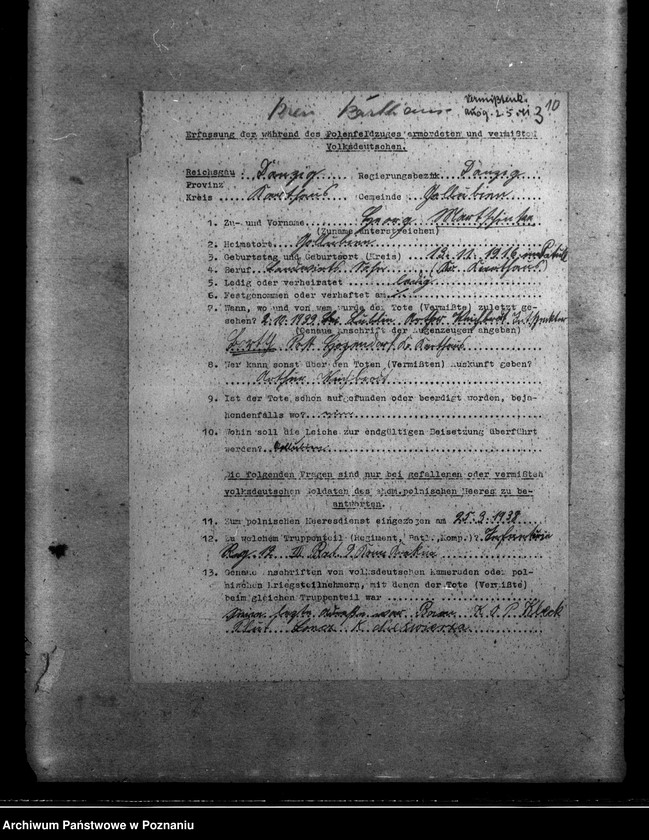 Kreis Karthaus
Vermißtenk.
10
3
Erfassung der während des Polenfeldzuges ermordeten und vermißten
Volksdeutschen.
Reichsgau : Danzig Regierungsbezirk Danzig
Provinz
Kreis Karthaus Gemeinde Gollubien
1. Zu- und Vorname Georg
(Zuname unterstreichen)
2. Heimatort Gollubien
3. Geburtstag und Geburtsort (Kreis) 12.11.1916 in
4. Beruf Landwirts Sohn (Kr. Karthaus)
5. Ledig oder verheiratet ledig
6. Festgenommen oder verhaftet am
7. Wann, wo und von wem wurde der Tote (Vermißte) zuletzt ge-
sehen? 2.10.1939 bei Lublin Arthur
(Genaue Anschrift der Augenzeugen angeben)
Post Kr. Karthaus
8. Wer kann sonst über den Toten (Vermißten) Auskunft geben?
Arthur
9. Ist der Tote schon aufgefunden oder beerdigt worden, beja-
hendenfalls wo? nein
10. Wohin soll die Leiche zur endgültigen Beisetzung überführt
werden? Gollubien
Die folgenden Fragen sind nur bei gefallenen oder vermißten
volksdeutschen Soldaten des ehem.polnischen Heeres zu be-
antworten.
11. Zum polnischen Heeresdienst eingezogen am 25.3.1938
12. Zu welchem Truppenteil (Regiment, Batl., Komp.)? Infanterie
Reg. 12 III Bat 9 Komp
13. Genaue Anschriften von volksdeutschen Kameraden oder pol-
nischen Kriegsteilnehmern, mit denen der Tote (Vermißte)
beim gleichen Truppenteil war
K.O.P. Kleck
Archiwum Państwowe w Poznaniu